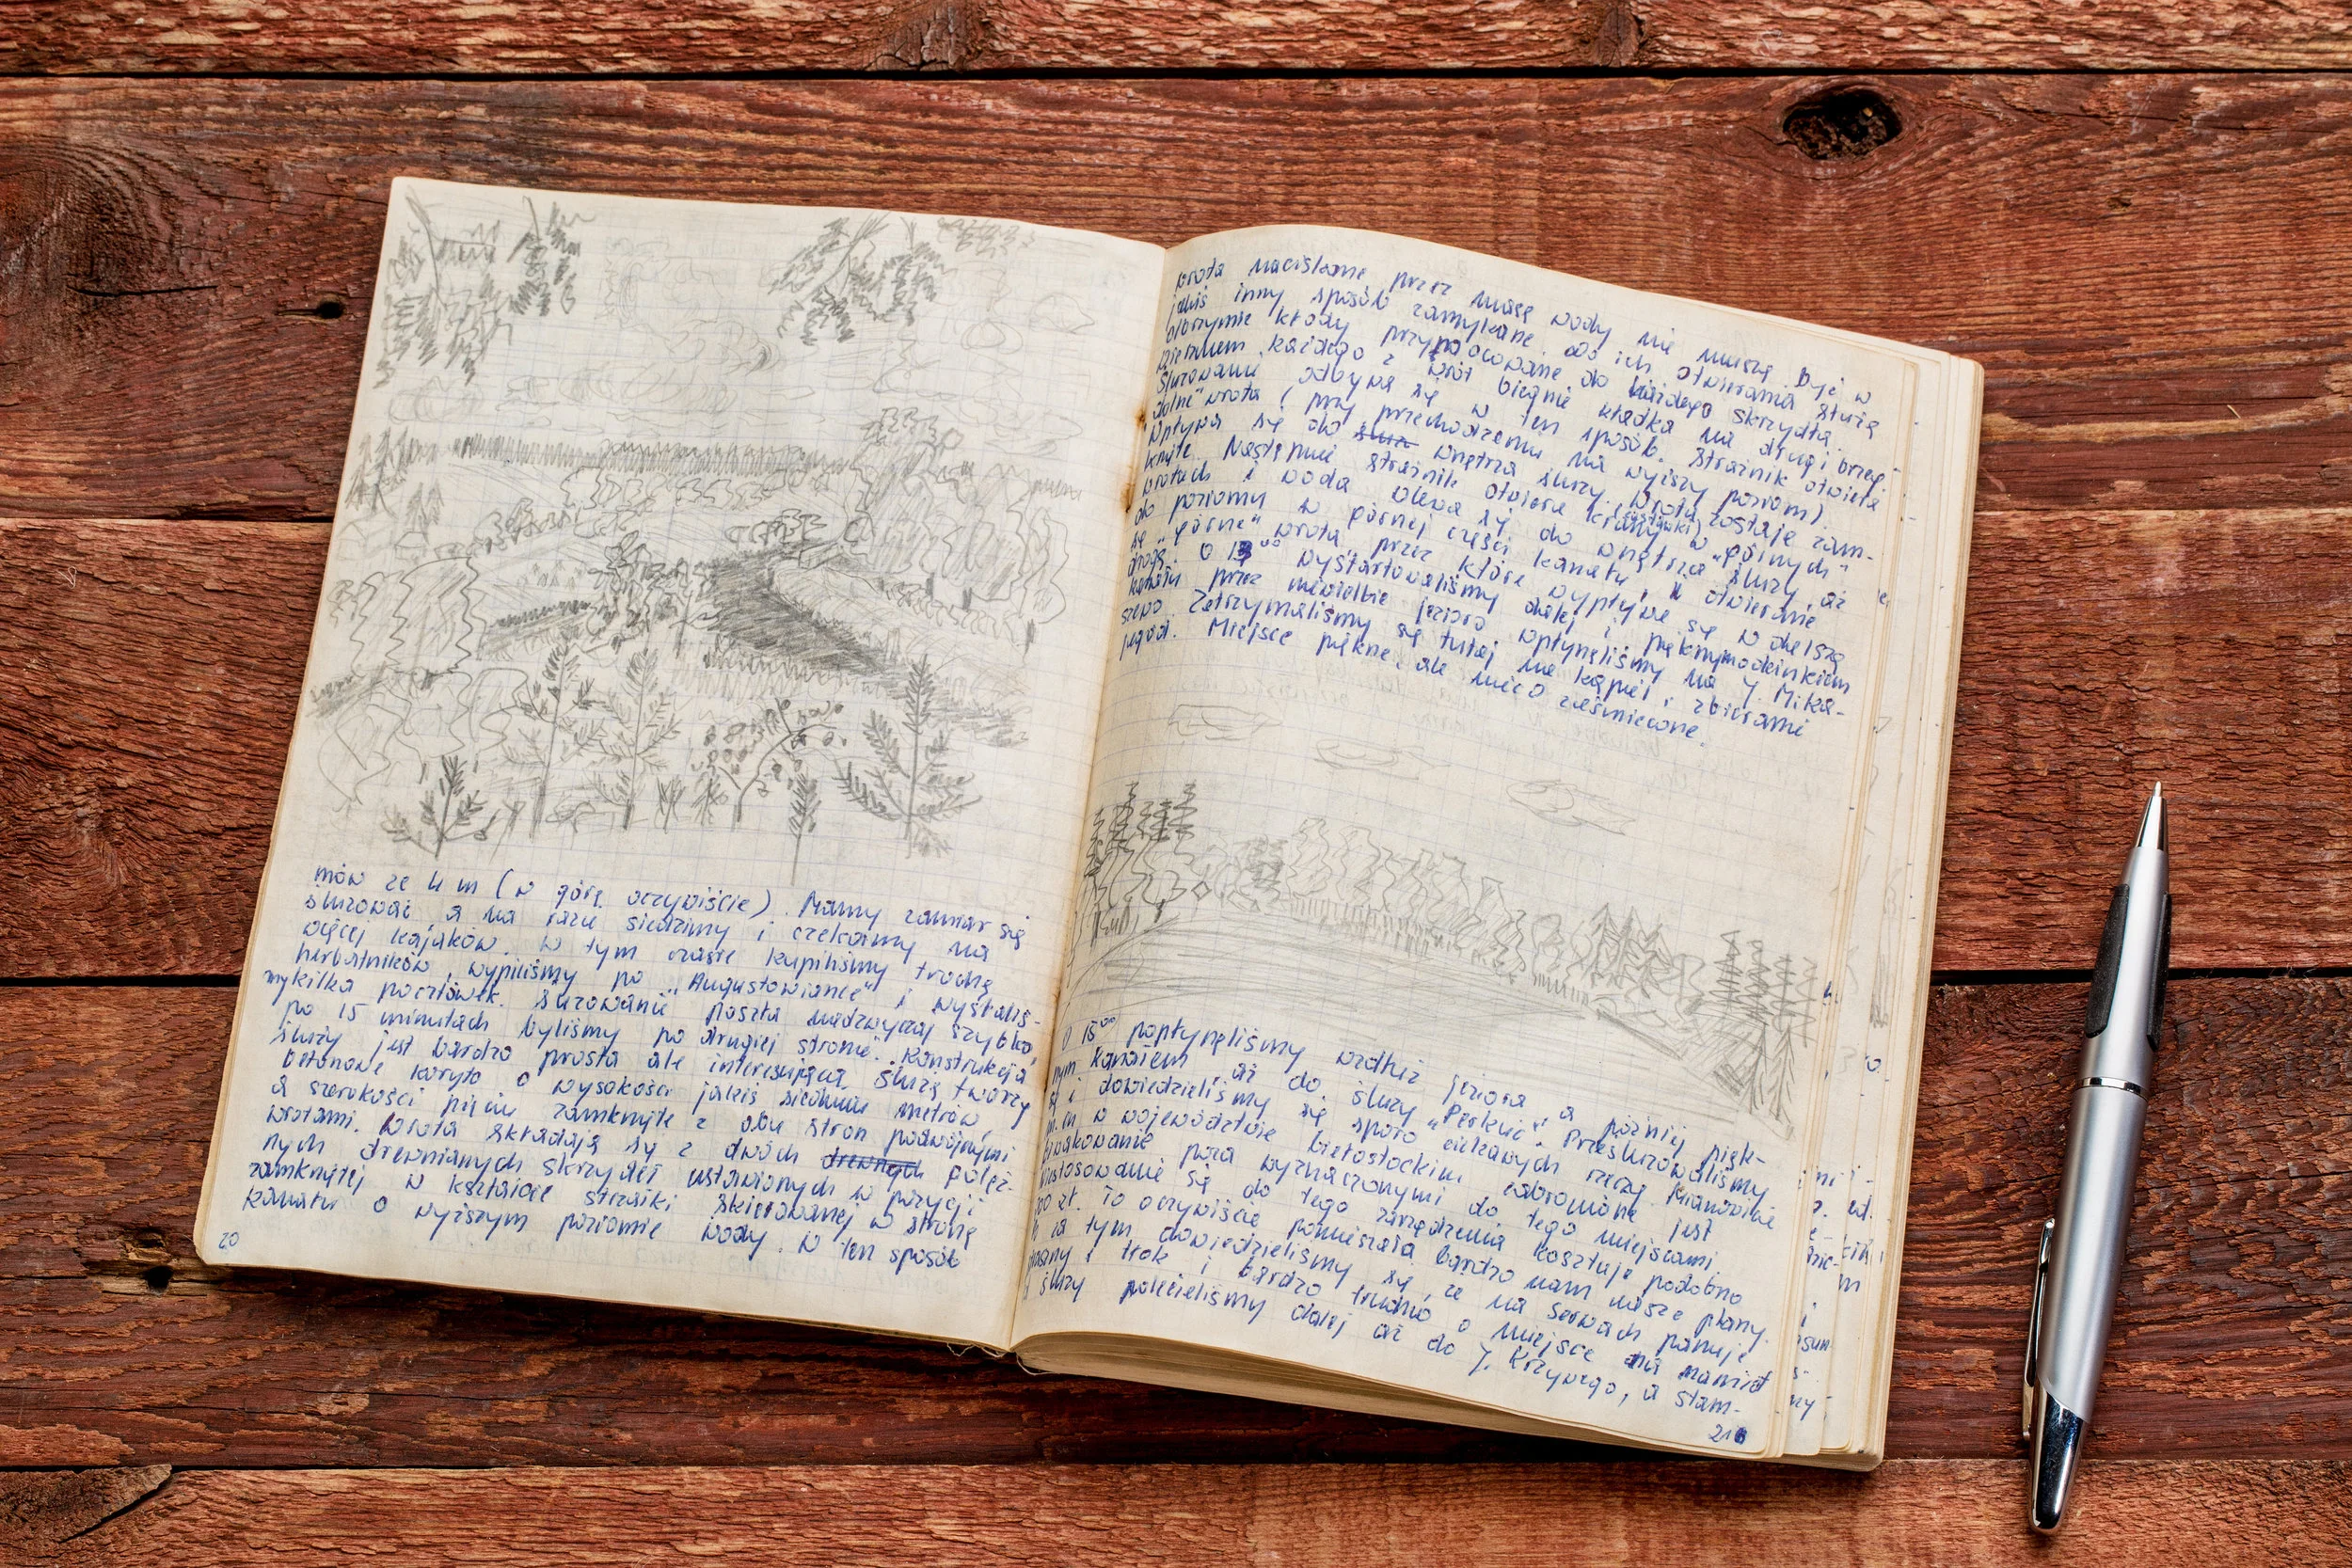 mów ze 4 m (w górę oczywiście). Mamy zamiar się
śluzować a na razie siedzimy i czekamy na
więcej kajaków. W tym czasie kupiliśmy trochę
herbatników, wypiliśmy po "Augustowiance" i wysłaliś-
my kilka pocztówek. Śluzowanie poszło nadzwyczaj szybko,
po 15 minutach byliśmy po drugiej stronie. Konstrukcja
śluzy jest bardzo prosta ale interesująca. Śluzę tworzy
betonowe koryto o wysokości jakiś siedmiu metrów,
a szerokości pięciu zamknięte z obu stron podwójnymi
wrotami. Wrota składają się z dwóch drewnych potęż-
nych drewnianych skrzydeł ustawionych w pozycji
zamkniętej w kształcie strzałki skierowanej w stronę
kanału o wyższym poziomie wody. W ten sposób
20
wrota naciskane przez masę wody nie muszą być w
jakiś inny sposób zamykane. Do ich otwierania służą
olbrzymie kłody przymocowane do każdego skrzydła.
Wierzchem każdego z wrót biegnie kładka na drugi brzeg.
Śluzowanie odbywa się w ten sposób. Strażnik otwiera
"dolne" wrota (przy przechodzeniu na wyższy poziom).
Wpływa się do śluz wnętrza śluzy. Wrota zostają zam-
knięte. Następnie strażnik otwiera krany w "górnych"
wrotach i woda wlewa się do wnętrza śluzy, aż
do poziomu w górnej części kanału, i otwieranie
się "górne" wrota przez które wypływa się w dalszą
drogę. O 13⁰⁰ wystartowaliśmy dalej i pięknymodcinkiem
kanału przez niewielkie jezioro wpłynęliśmy na J. Mika-
szewo. Zatrzymaliśmy się tutaj na kąpiel i zbieranie
jagód. Miejsce piękne, ale nieco zaśmiecone.
O 15⁰⁰ popłynęliśmy wzdłuż jeziora a później pięk-
nym kanałem, aż do śluzy "Perkuć". Prześluzowaliśmy
się i dowiedzieliśmy się sporo ciekawych rzeczy. Mianowicie
m.in w województwie białostockim zabronione jest
biwakowanie poza wyznaczonymi do tego miejscami.
Niestosowanie się do tego zarządzenia kosztuje podobno
zł. To oczywiście pomieszało bardzo nam nasze plany.
za tym dowiedzieliśmy się, że na Serwach panuje
tłok i bardzo trudno o miejsce na namiot
śluzy polecieliśmy dalej aż do J. Krzywego, a stam-
21